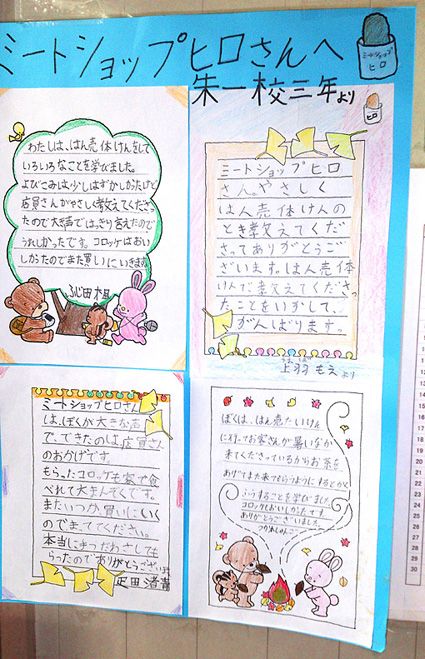 ミートショップヒロさんへ
ミートショップ
ヒロ
朱一校三年より
ヒロ
わたしは、はん売体けんをして
いろいろなことを学びました。
よびこみは少しはずかしかったけど
店員さんがやさしく教えてくださっ
たので大声ではっきり言えたので
うれしかったです。コロッケはおい
しかったのでまた買いにいきます。
ミートショップヒロ
さん。やさしく
はん売体けんの
とき教えてくだ
さってありがとうご
ざいます。はん売体
けんで教えてくださっ
たことをいかして、
がんばります。
上羽もえより
ミートショップヒロさん
は、ぼくが大きな声
で、できたのは店員さん
のおかげです。
もらったコロッケも家で食
べれて大まんぞくです。
またいつか買いにいく
のでまっててください。
本当にまつだわさしても
らったのでありがとうござい
ぼくは、はん売たいけん
に行ってお客さんが暑いなか
来てくださっているからお茶を
あげてまた来てもらうようにするとか
くふうすることを学びました。
コロッケもおいしかったです
ありがとうございました。
10
20
30